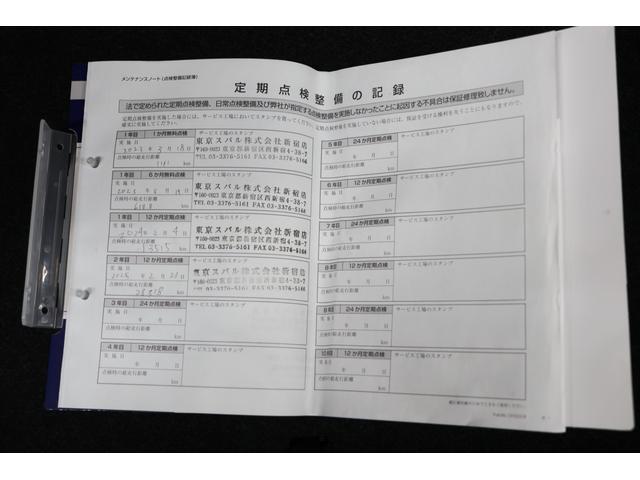 メンテナンスノート(点検整備記録簿)
定期点検整備の記録
法で定められた定期点検整備、日常点検整備及び弊社が指定する点検整備を実施しなかったことに起因する不具合は保証修理致しません。
定期点検整備を実施した場合には、サービス工場においてスタンプを貰ってください。定期点検整備を実施していない場合には、保証を受ける権利を失うこともになりますので、
確実に実施してください。
1年目 1か月無料点検 サービス工場のスタンプ
実施日
2023年3月18日
点検時の総走行距離
1181 km
東京スバル株式会社新宿店
〒160-0023 東京都新宿区西新宿4-38-7
TEL 03-3376-5161 FAX 03-3376-5166
1年目 6か月無料点検 サービス工場のスタンプ
実施日
2023年8月19日
点検時の総走行距離
6188 km
東京スバル株式会社新宿店
〒160-0023 東京都新宿区西新宿4-38-7
TEL 03-3376-5161 FAX 03-3376-5166
1年目 12か月定期点検 サービス工場のスタンプ
実施日
2024年2月4日
点検時の総走行距離
13515 km
東京スバル株式会社新宿店
〒160-0023 東京都新宿区西新宿4-38-7
TEL 03-3376-5161 FAX 03-3376-5166
2年目 12か月定期点検 サービス工場のスタンプ
実施日
点検時の総走行距離
km
東京スバル株式会社新宿店
〒160-0023 東京都新宿区西新宿4-38-7
TEL 03-3376-5161 FAX 03-3376-5166
3年目 24か月定期点検 サービス工場のスタンプ
実施日
年 月 日
点検時の総走行距離
km
4年目 12か月定期点検 サービス工場のスタンプ
実施日
年 月 日
点検時の総走行距離
km
5年目 24か月定期点検 サービス工場のスタンプ
実施日
年 月 日
点検時の総走行距離
km
6年目 12か月定期点検 サービス工場のスタンプ
実施日
年 月 日
点検時の総走行距離
km
7年目 24か月定期点検 サービス工場のスタンプ
実施日
年 月 日
点検時の総走行距離
km
8年目 12か月定期点検 サービス工場のスタンプ
実施日
年 月 日
点検時の総走行距離
km
24か月定期点検 サービス工場のスタンプ
実施日
年 月 日
点検時の総走行距離
km
10年目 12か月定期点検 サービス工場のスタンプ
実施日
年 月 日
点検時の総走行距離
km